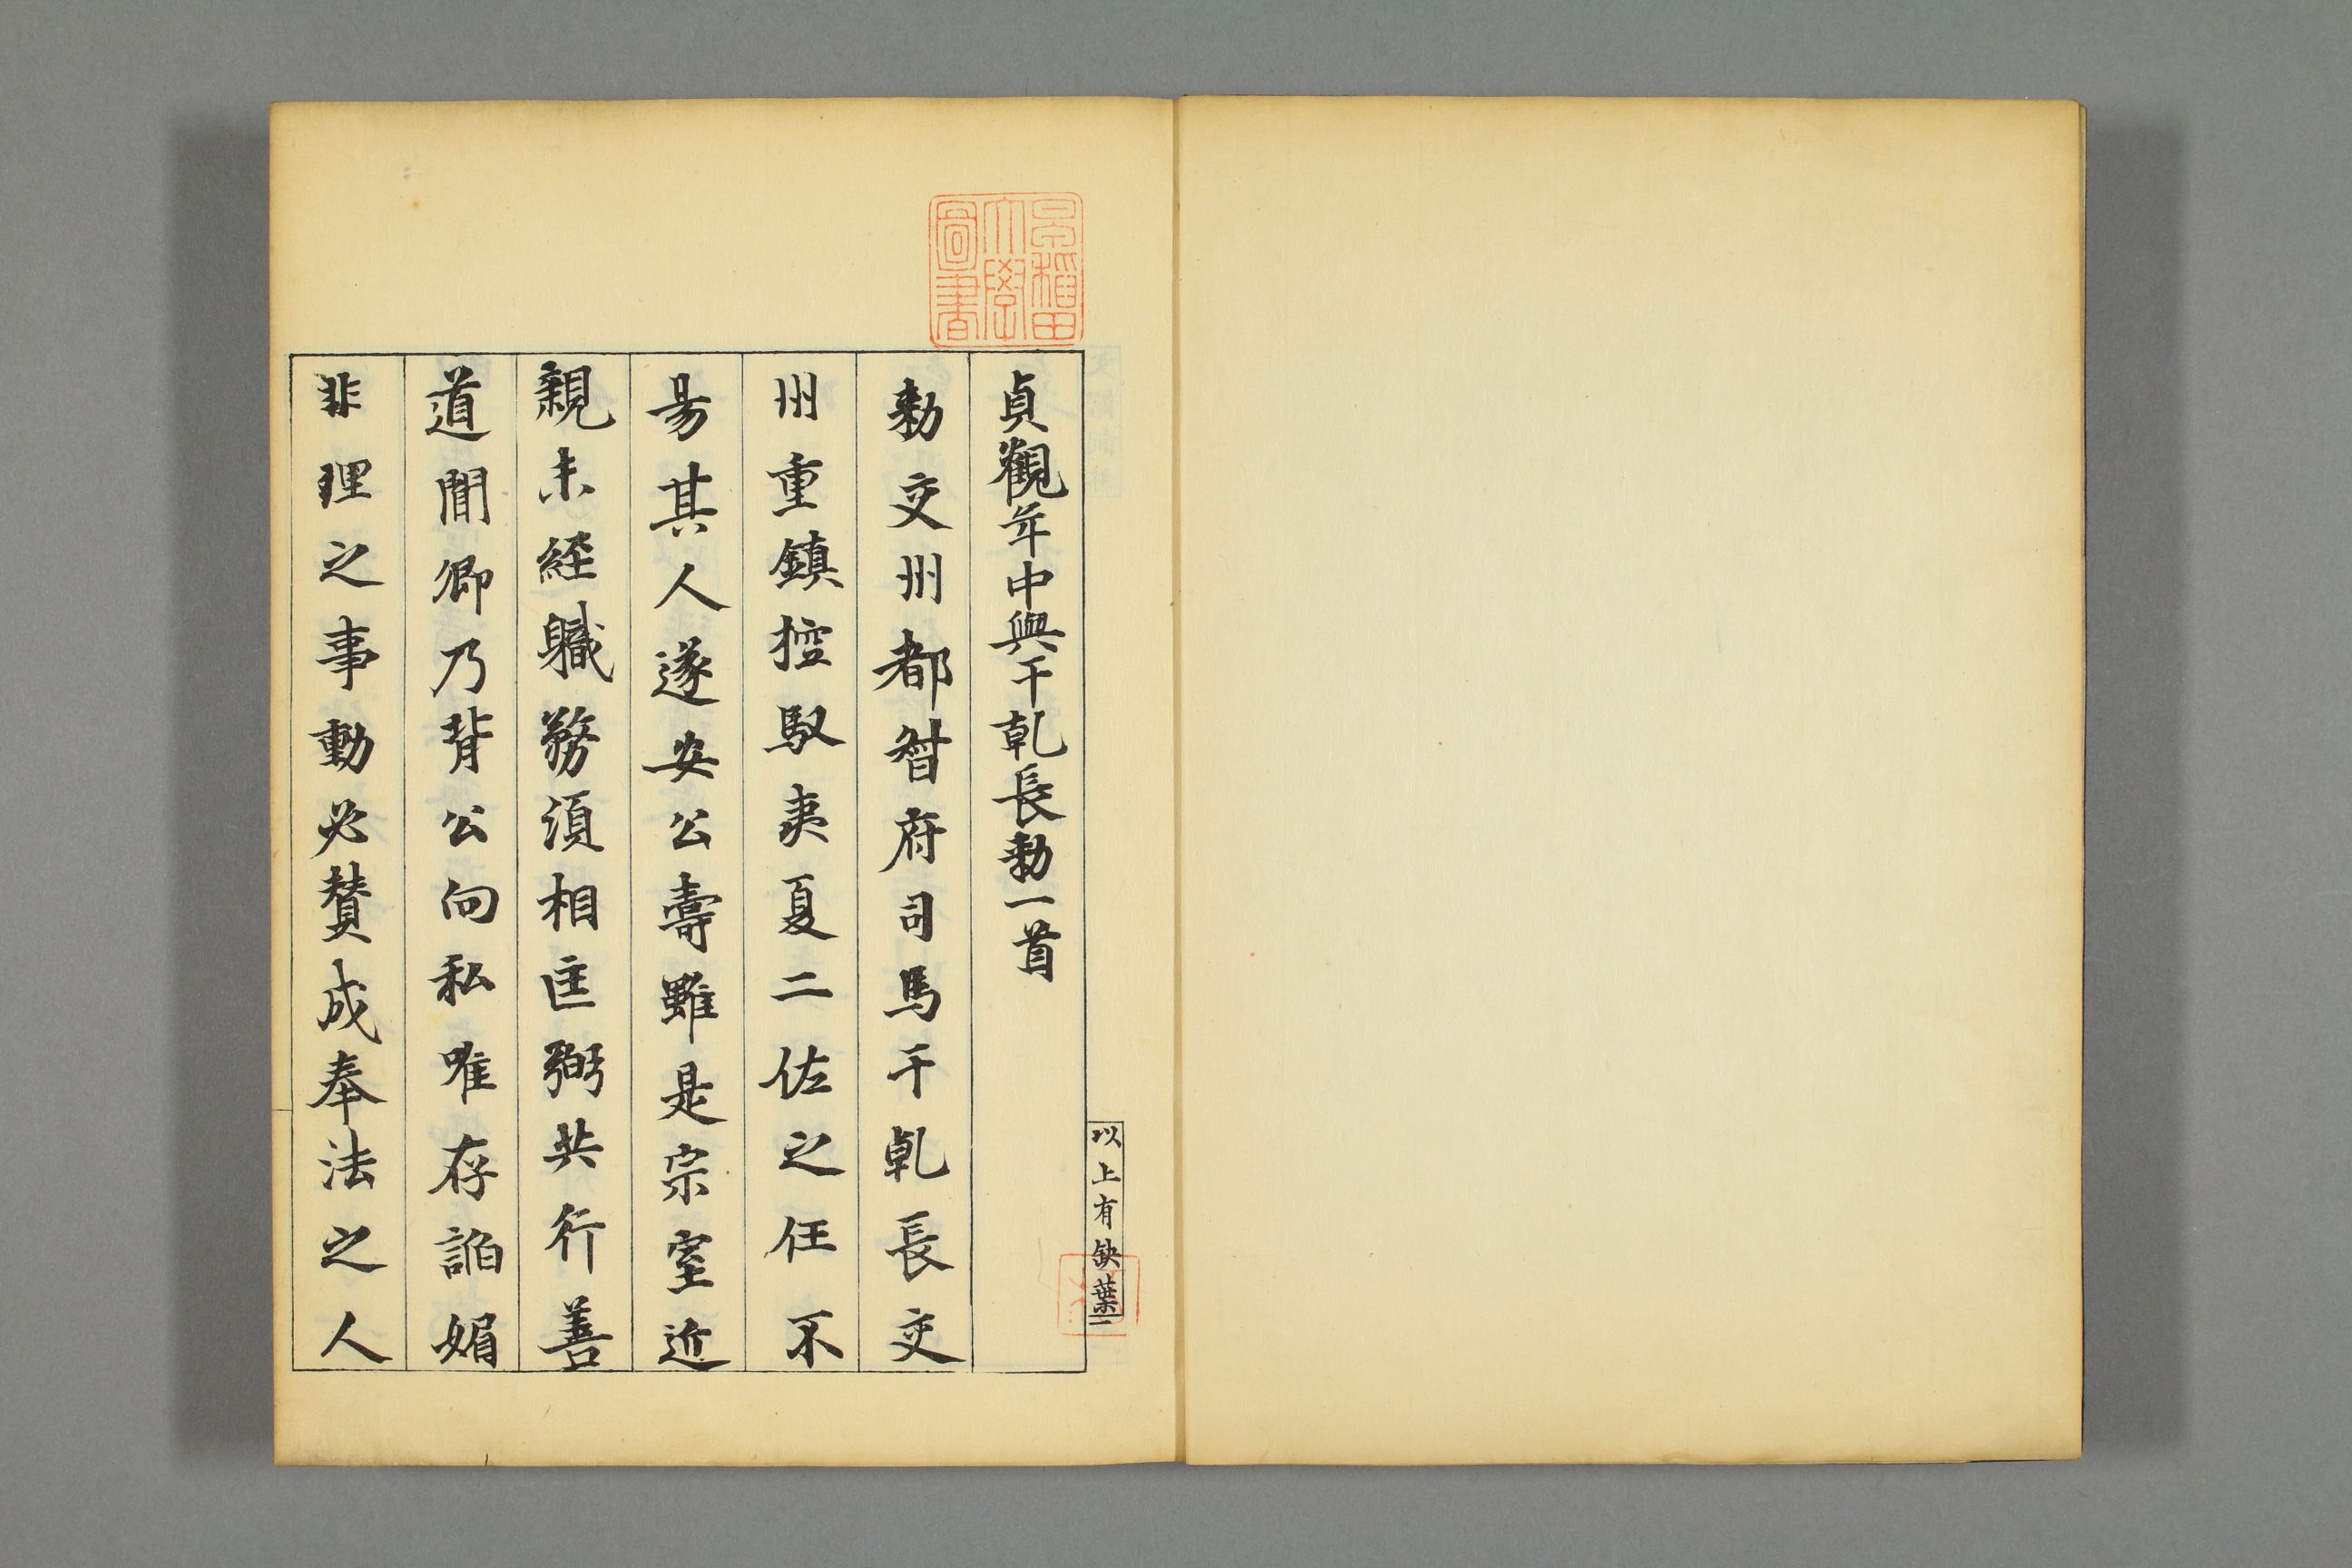 早稲田
大學
圖書
以上有缺葉
貞觀年中與干乹長勑一首
勑交州都督府司馬干乹長交
州重鎮控馭夷夏二佐之任不
易其人遂安公壽雖是宗室近
親未經軄務須相匡弼共行善
道聞卿乃背公向私唯存諂媚
非理之事動必賛成奉法之人